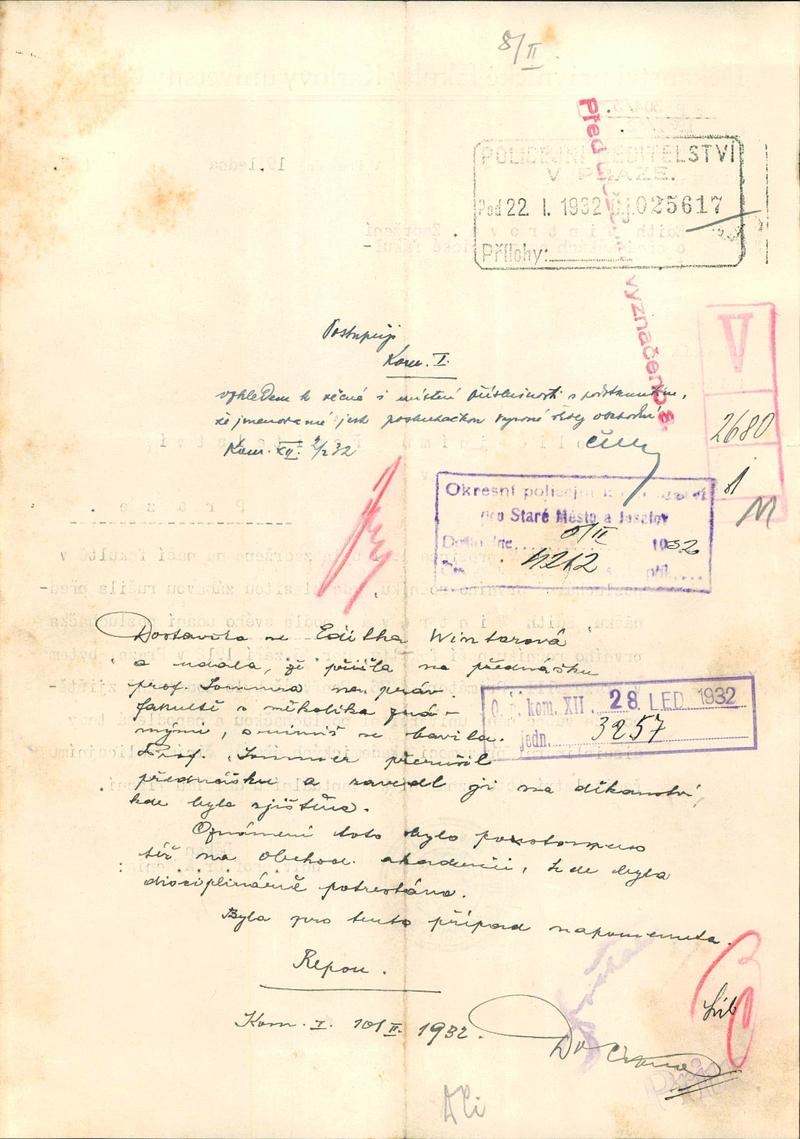 8/II
POLICEJNÍ ŘEDITELSTVÍ
V PRAZE.
Pod 22. I. 1932 č.j. 025617
Přílohy:
vyznačeno s.
Postupuji
Kom. I.
vzhledem k věcné i místní příslušnosti s podotknutím,
že jmenovaná jest posluchačkou vyšší školy obchodní
Kom. XII. 1/2 32
V
2680
Okresní policejní
pro Staré Město a Josefov
Došlo dne 8/II 1932
4262
příl.
Dostavila se Editha Winterová
a udala, že přišla na přednášku
prof. Sommera na práv.
fakultě s několika zná-
mými, s nimiž se bavila.
Prof. Sommer přerušil
přednášku a zavedl ji na děkanství,
kde byla zjištěna.
Oznámení toto bylo
též na obchod. akademii, kde byla
disciplinárně potrestána.
Byla pro tento případ napomenuta.
O. p. kom. XII. 28. LED. 1932
jedn. 3257
Repon.
Kom. I. 10/II. 1932.
Dr